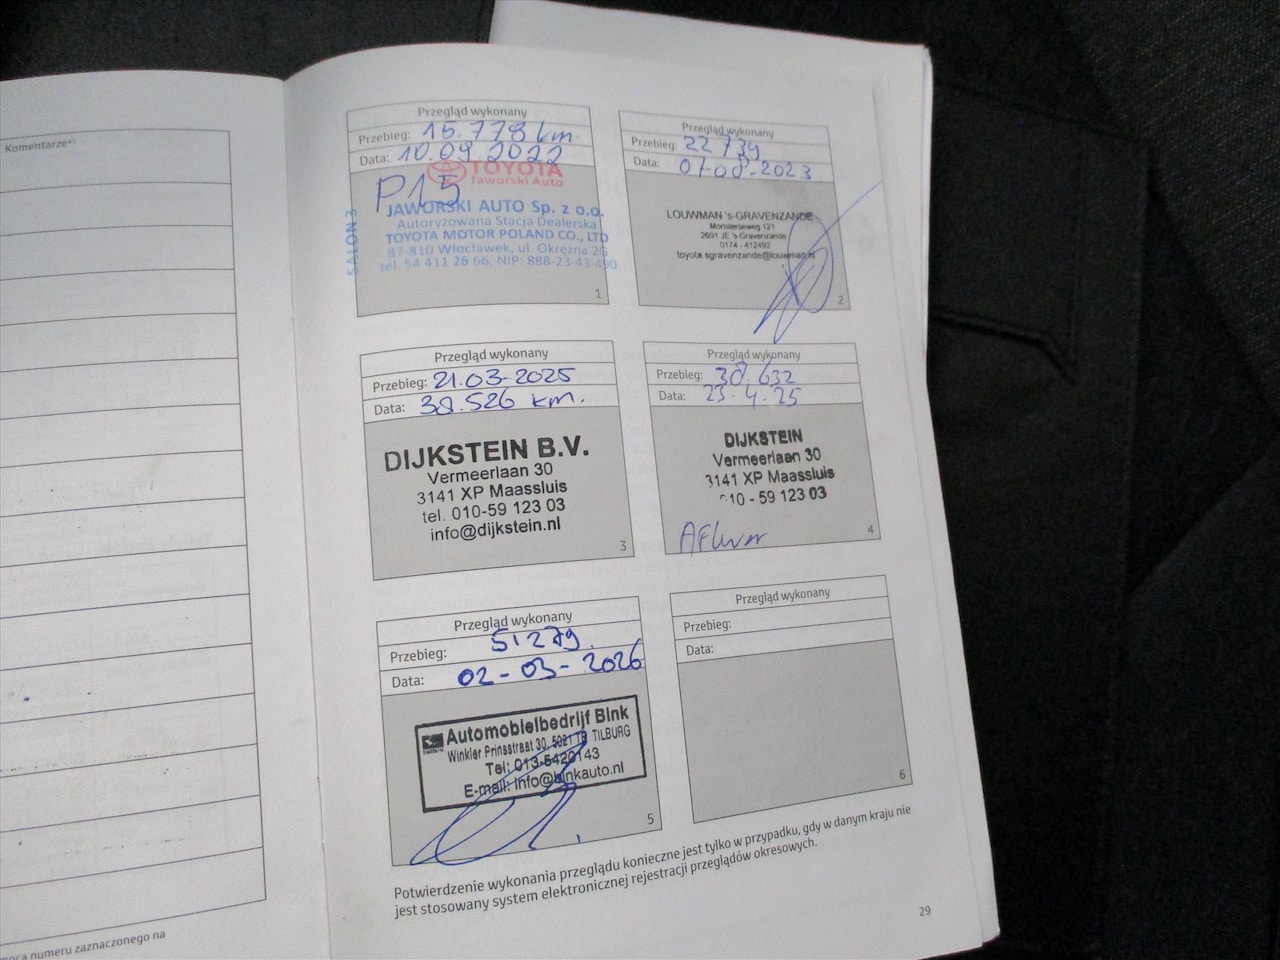 Komentarze*⁾
Przegląd wykonany
Przebieg: 15.778 km
Data: 10.09.2022
TOYOTA
Jaworski Auto
P15
SALON 3
JAWORSKI AUTO Sp. z o.o.
Autoryzowana Stacja Dealerska
TOYOTA MOTOR POLAND CO., LTD
87-810 Włocławek, ul. Okrężna 2G
tel. 54 411 26 66, NIP: 888-23-43-490
1
Przegląd wykonany
Przebieg: 22739
Data: 07-08-2023
LOUWMAN 's-GRAVENZANDE
Monsterseweg 121
2691 JE 's-Gravenzande
0174 - 412492
toyota.sgravenzande@louwman.nl
2
Przegląd wykonany
Przebieg: 21.03-2025
Data: 38.526 km.
DIJKSTEIN B.V.
Vermeerlaan 30
3141 XP Maassluis
tel. 010-59 123 03
info@dijkstein.nl
3
Przegląd wykonany
Przebieg: 38.632
Data: 23.4.25
DIJKSTEIN
Vermeerlaan 30
3141 XP Maassluis
010 - 59 123 03
4
Przegląd wykonany
Przebieg: 51279.
Data: 02-03-2026
Automobielbedrijf Bink
Winkler Prinsstraat 30, 5021 TB TILBURG
Tel: 013-5420143
E-mail: info@binkauto.nl
5
Przegląd wykonany
Przebieg:
Data:
6
Potwierdzenie wykonania przeglądu konieczne jest tylko w przypadku, gdy w danym kraju nie
jest stosowany system elektronicznej rejestracji przeglądów okresowych.
29
numeru zaznaczonego na